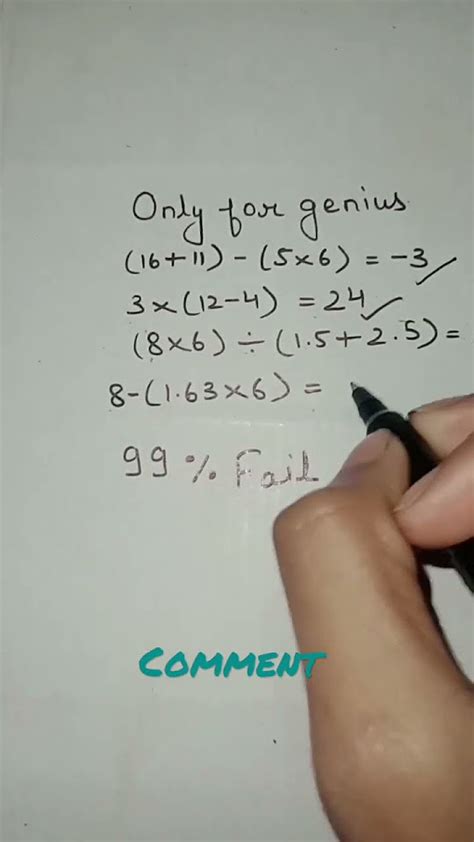 Only for genius
(16+11) - (5×6) = -3 ✓
3×(12-4) = 24 ✓
(8×6) ÷ (1.5+2.5) =
8-(1.63×6) =
99 % Fail
COMMENT